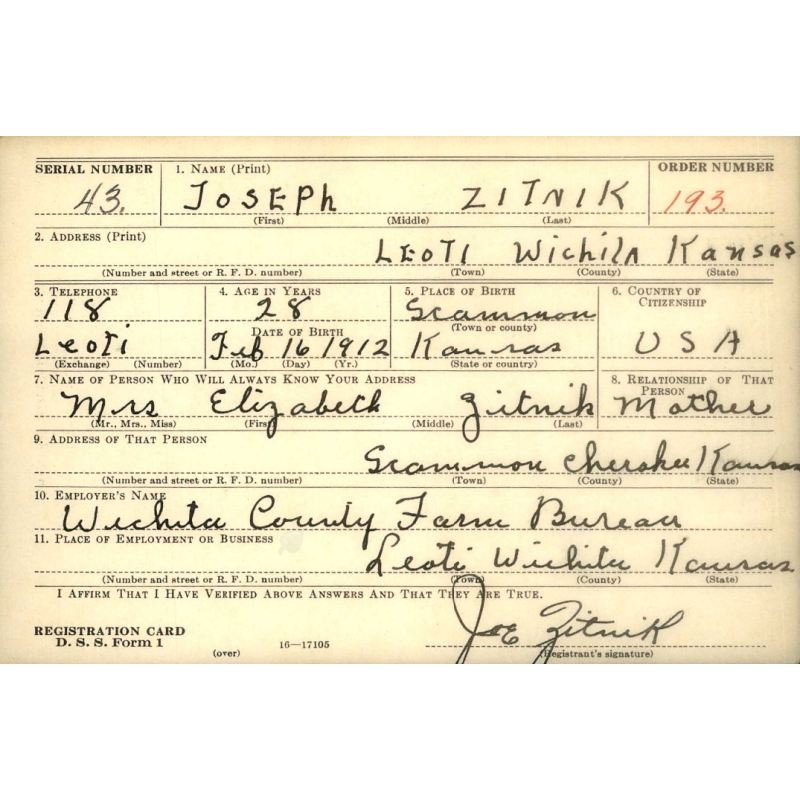 SERIAL NUMBER 1. NAME (Print) ORDER NUMBER
43. JOSEPH ZITNIK 193.
(First) (Middle) (Last)
2. ADDRESS (Print)
LEOTI Wichita Kansas
(Number and street or R. F. D. number) (Town) (County) (State)
3. TELEPHONE 4. AGE IN YEARS 5. PLACE OF BIRTH 6. COUNTRY OF CITIZENSHIP
118 28 Scammon
DATE OF BIRTH (Town or county)
Leoti Feb 16 1912 Kansas USA
(Exchange) (Number) (Mo.) (Day) (Yr.) (State or country)
7. NAME OF PERSON WHO WILL ALWAYS KNOW YOUR ADDRESS 8. RELATIONSHIP OF THAT PERSON
Mrs Elizabeth Zitnik Mother
(Mr., Mrs., Miss) (First) (Middle) (Last)
9. ADDRESS OF THAT PERSON
Scammon Cherokee Kansas
(Number and street or R. F. D. number) (Town) (County) (State)
10. EMPLOYER'S NAME
Wichita County Farm Bureau
11. PLACE OF EMPLOYMENT OR BUSINESS
Leoti Wichita Kansas
(Number and street or R. F. D. number) (Town) (County) (State)
I AFFIRM THAT I HAVE VERIFIED ABOVE ANSWERS AND THAT THEY ARE TRUE.
REGISTRATION CARD
D. S. S. Form 1 16—17105 Joe Zitnik
(over) (Registrant's signature)